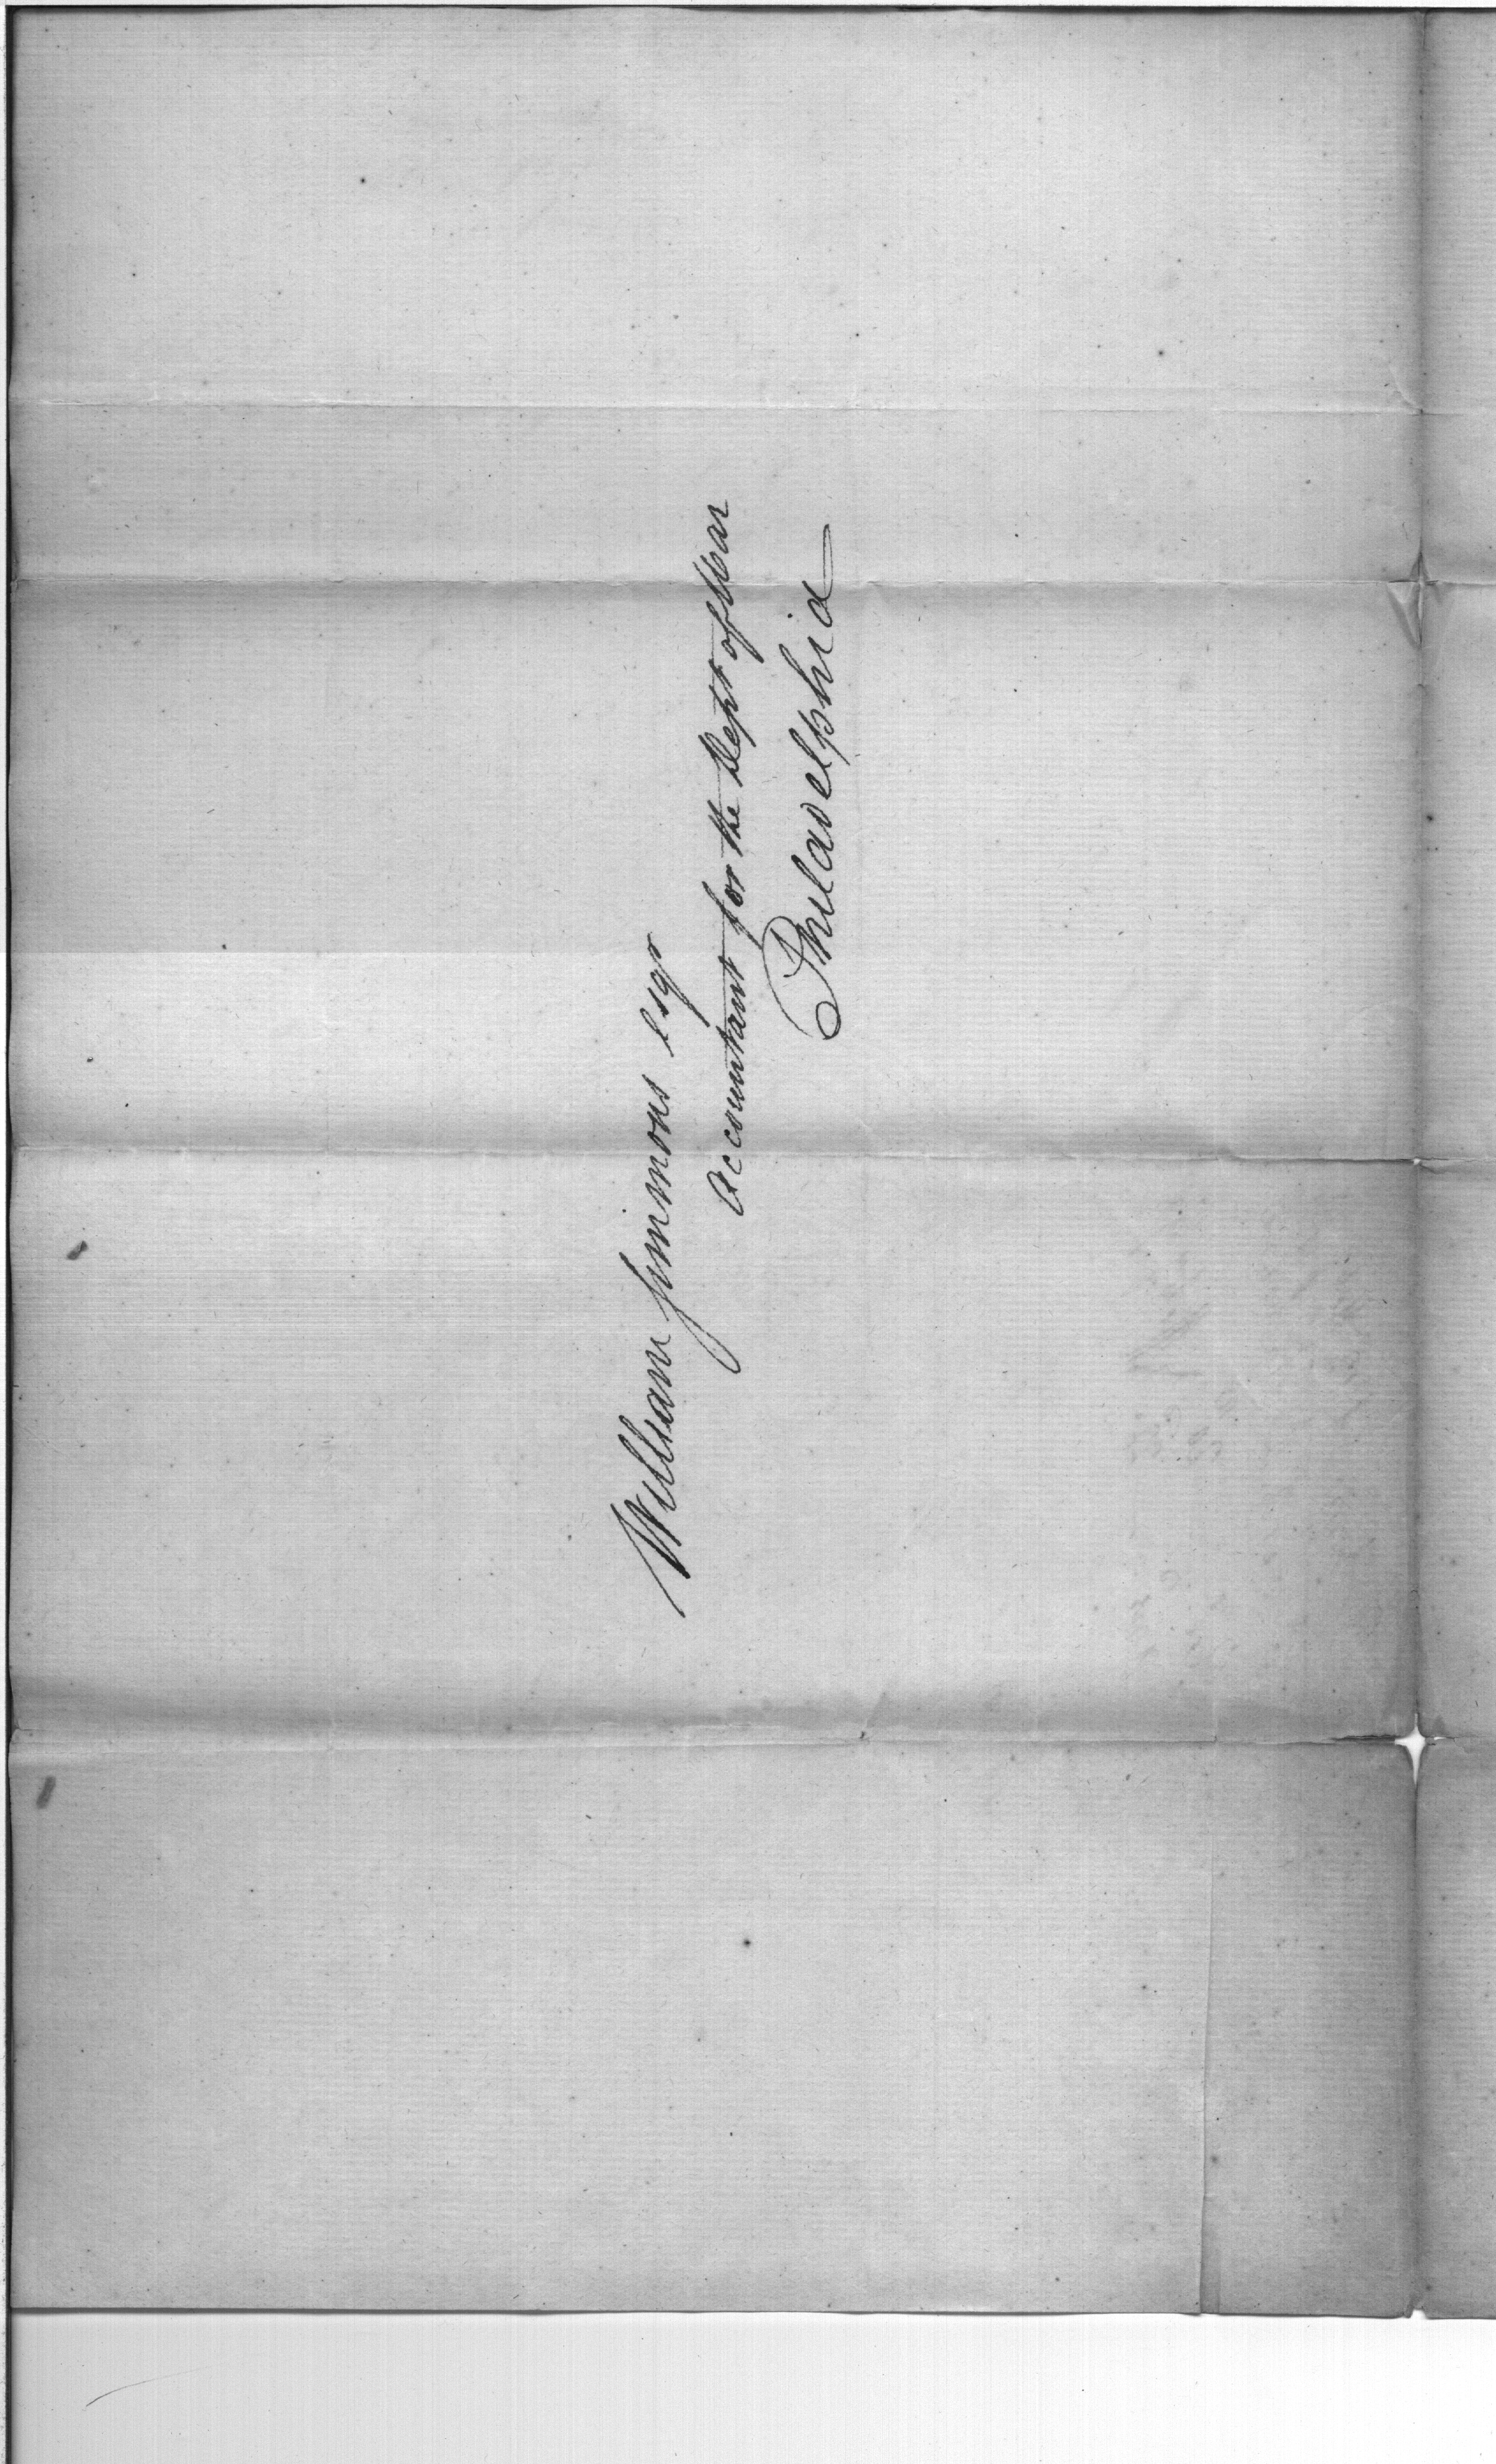 William Simmons esqr
Accountant for the Dept of War
Philadelphia